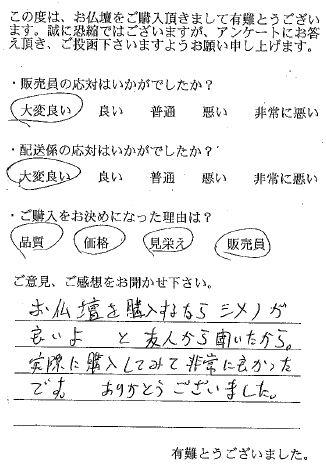 この度は、お仏壇をご購入頂きまして有難とうござい
ます。誠に恐縮ではございますが、アンケートにお答
え頂き、ご投函下さいますようお願い申し上げます。
・販売員の応対はいかがでしたか?
大変良い 良い 普通 悪い 非常に悪い
・配送係の応対はいかがでしたか?
大変良い 良い 普通 悪い 非常に悪い
・ご購入をお決めになった理由は?
品質 価格 見栄え 販売員
ご意見、ご感想をお聞かせ下さい。
お仏壇を購入するなら シメノが
良いよ と友人から聞いたから。
実際に購入してみて非常に良かった
です。 ありがとうございました。
有難とうございました。